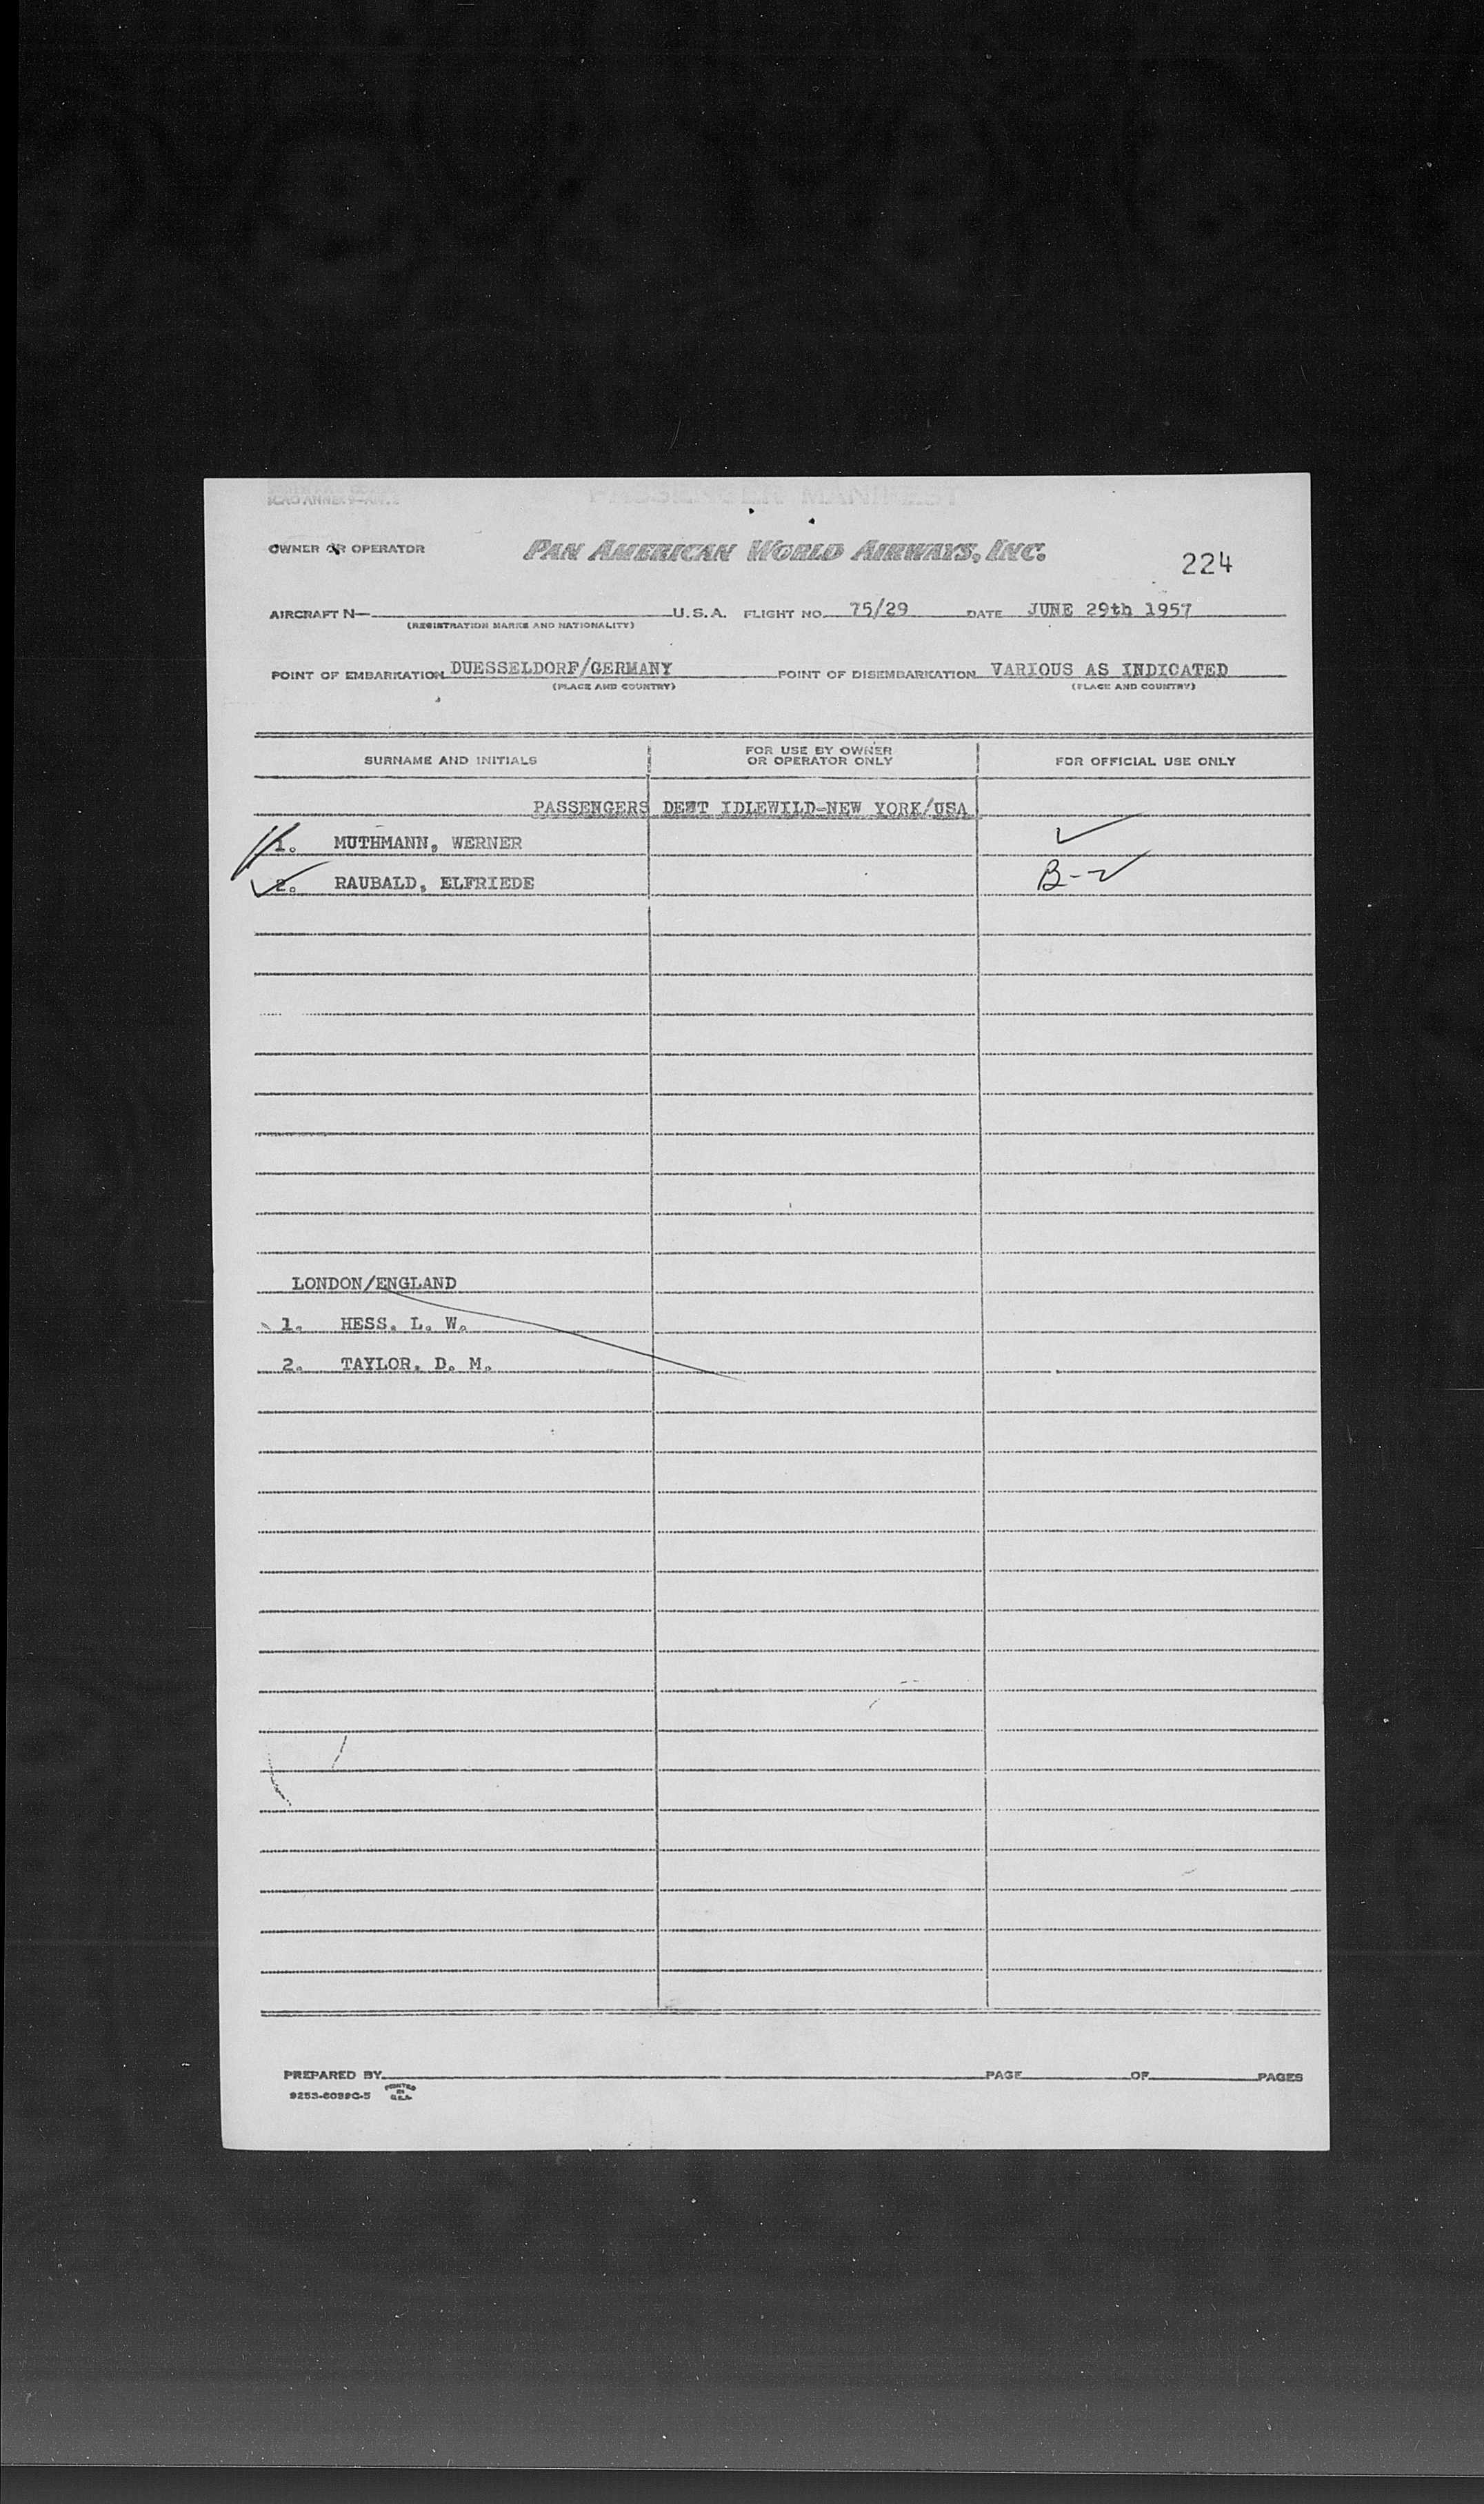 ICAO ANNEX 9-APP. 2
PASSENGER MANIFEST
OWNER OR OPERATOR PAN AMERICAN WORLD AIRWAYS, INC. 224
AIRCRAFT N— U.S.A. FLIGHT NO. 75/29 DATE JUNE 29th 1957
(REGISTRATION MARKS AND NATIONALITY)
POINT OF EMBARKATION DUESSELDORF/GERMANY POINT OF DISEMBARKATION VARIOUS AS INDICATED
(PLACE AND COUNTRY) (PLACE AND COUNTRY)
SURNAME AND INITIALS FOR USE BY OWNER OR OPERATOR ONLY FOR OFFICIAL USE ONLY
PASSENGERS DEST IDLEWILD-NEW YORK/USA
1. MUTHMANN, WERNER ✓
2. RAUBALD, ELFRIEDE B-2
LONDON/ENGLAND
1. HESS, L. W.
2. TAYLOR, D. M.
PREPARED BY PAGE OF PAGES
PRINTED IN U.S.A.